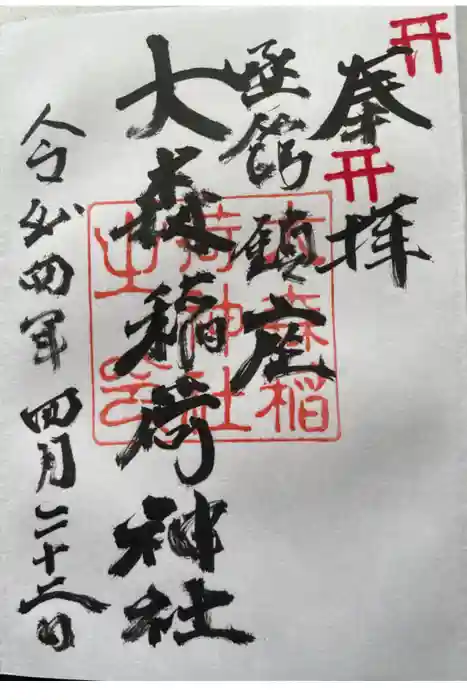 奉拝
函館鎮座
大森稲荷神社
令和四年四月二十六日
大森稲荷神社之印